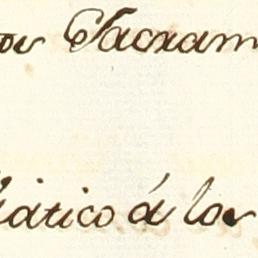 los Sacram
Viático á los